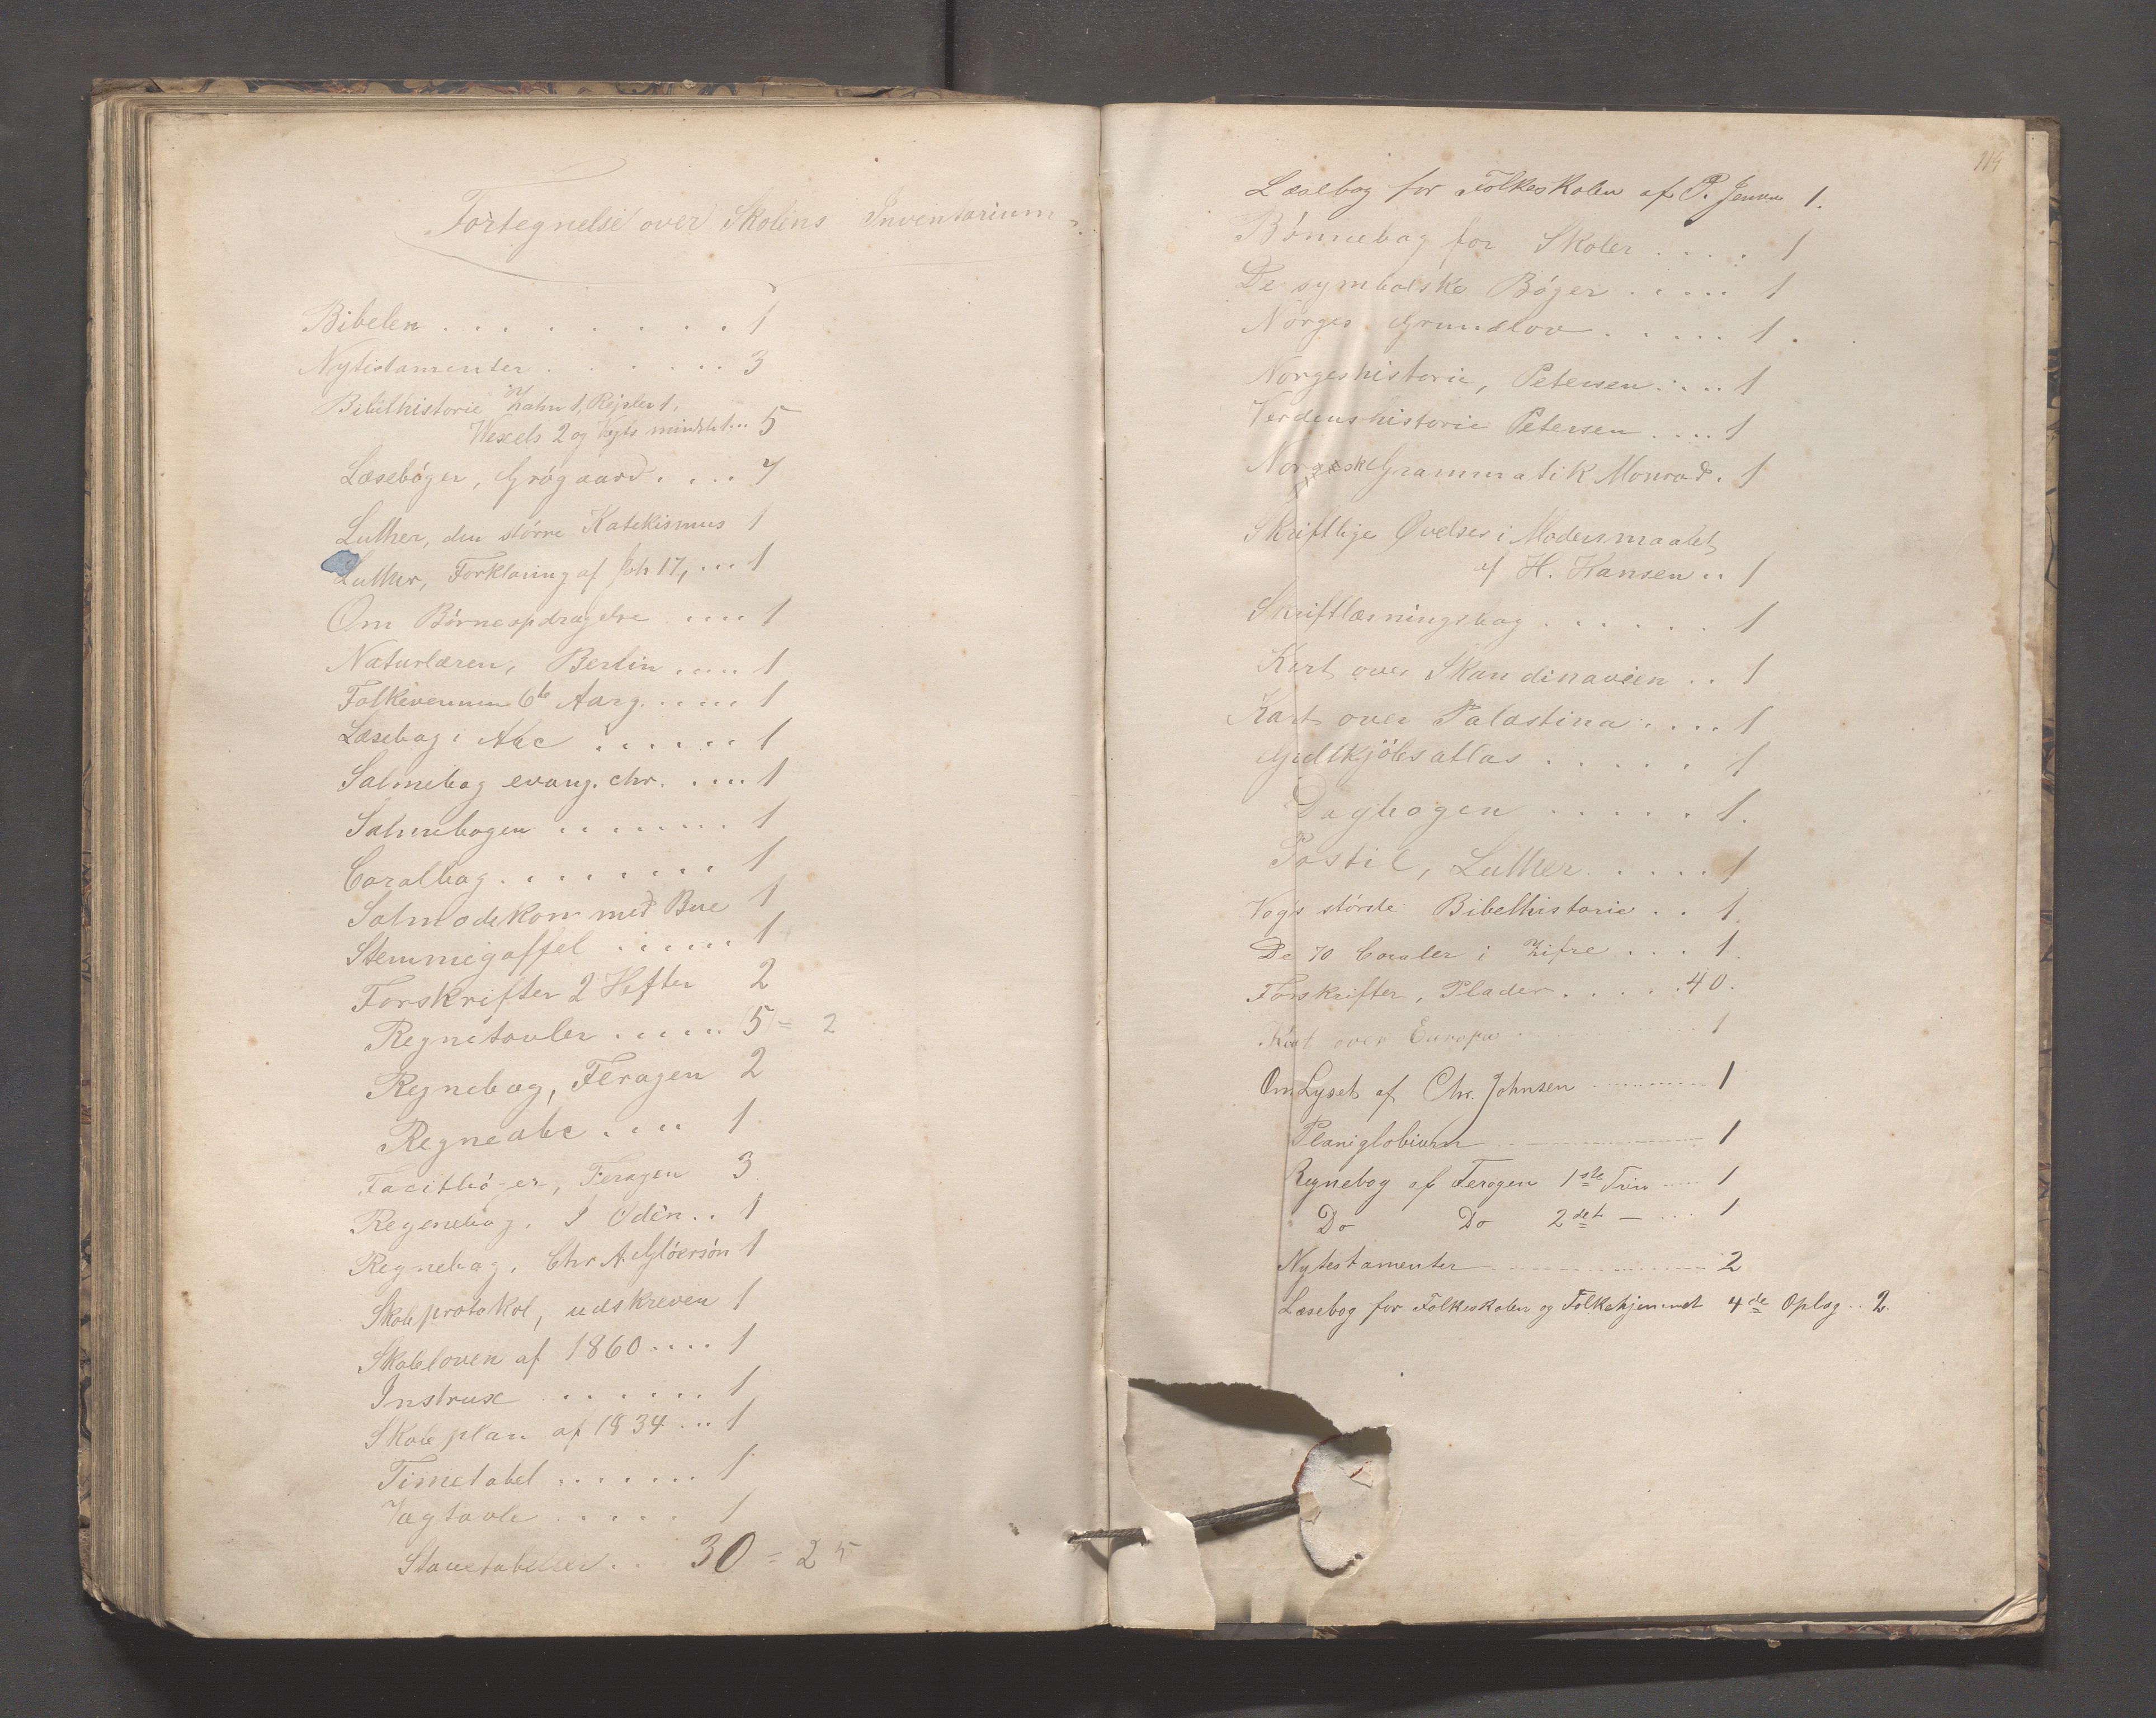 Fortegnelse over Skolens Inventarium.
Bibelen . . . . . . . . . 1
Nytistamenter . . . . . . . 3
Bibelhistorie af Zahn 1,
Wexels 2 og Vogts mindste 1... 5
Læsebøger, Grøgaard. . . . . 7
Luther, den större Katekismus 1
Luther, Forklaring af Joh 17, ... 1
Om Börneopdragelse .... 1
Naturlæren, Berlin ..... 1
Folkevennen 6te Aarg. ..... 1
Læsebog i Abc ....... 1
Salmebog evang. chr. .... 1
Salmebogen ........ 1
Coralbog ......... 1
Salmodekon med Bue 1
Stemmegaffel ...... 1
Forskrifter 2 Hefter 2
Regnetavler ...... 5 = 2
Regnebog, Feragen 2
Regneabc .... 1
Facitböger, Feragen 3
Regenebog, S Odén.. 1
Regnebog, Chr A Glöersön 1
Skoleprotokol, udskreven 1
Skoleloven af 1860.... 1
Instrux ....... 1
Skoleplan af 1834... 1
Timetabel ....... 1
Vægtavle ..... 1
Stavetabeller.. 30 = 25
114
Læsebog for Folkeskolen af P. Jensen 1.
Bönnebog for Skoler .... 1
De symbolske Böger ..... 1
Norges Grundlov ..... 1.
Norgeshistorie, Petersen.... 1
Verdenshistorie Petersen .... 1
Norsk Grammatik Monrad. 1
Skriftlige Øvelser i Modersmaalet
af H. Hansen.. 1
Skriftlæsningsbog ...... 1
Kart over Skandinavien .. 1
Kart over Palæstina .... 1
atlas ..... 1
Dagbogen ..... 1.
Postil, Luther ..... 1
Vogts större Bibelhistorie .. 1.
De 70 Coraler i Zifre ... 1.
Forskrifter, Plader ..... 40.
Kart over Europa ... 1
Om Lyset af Chr. Johnsen .......... 1
Planiglobium .......... 1
Regnebog af Feragen 1ste Trin .... 1
Do Do 2det — .... 1
Nytestamenter .......... 2
Læsebog for Folkeskolen og Folkehjemmet 4de Oplag .. 2.